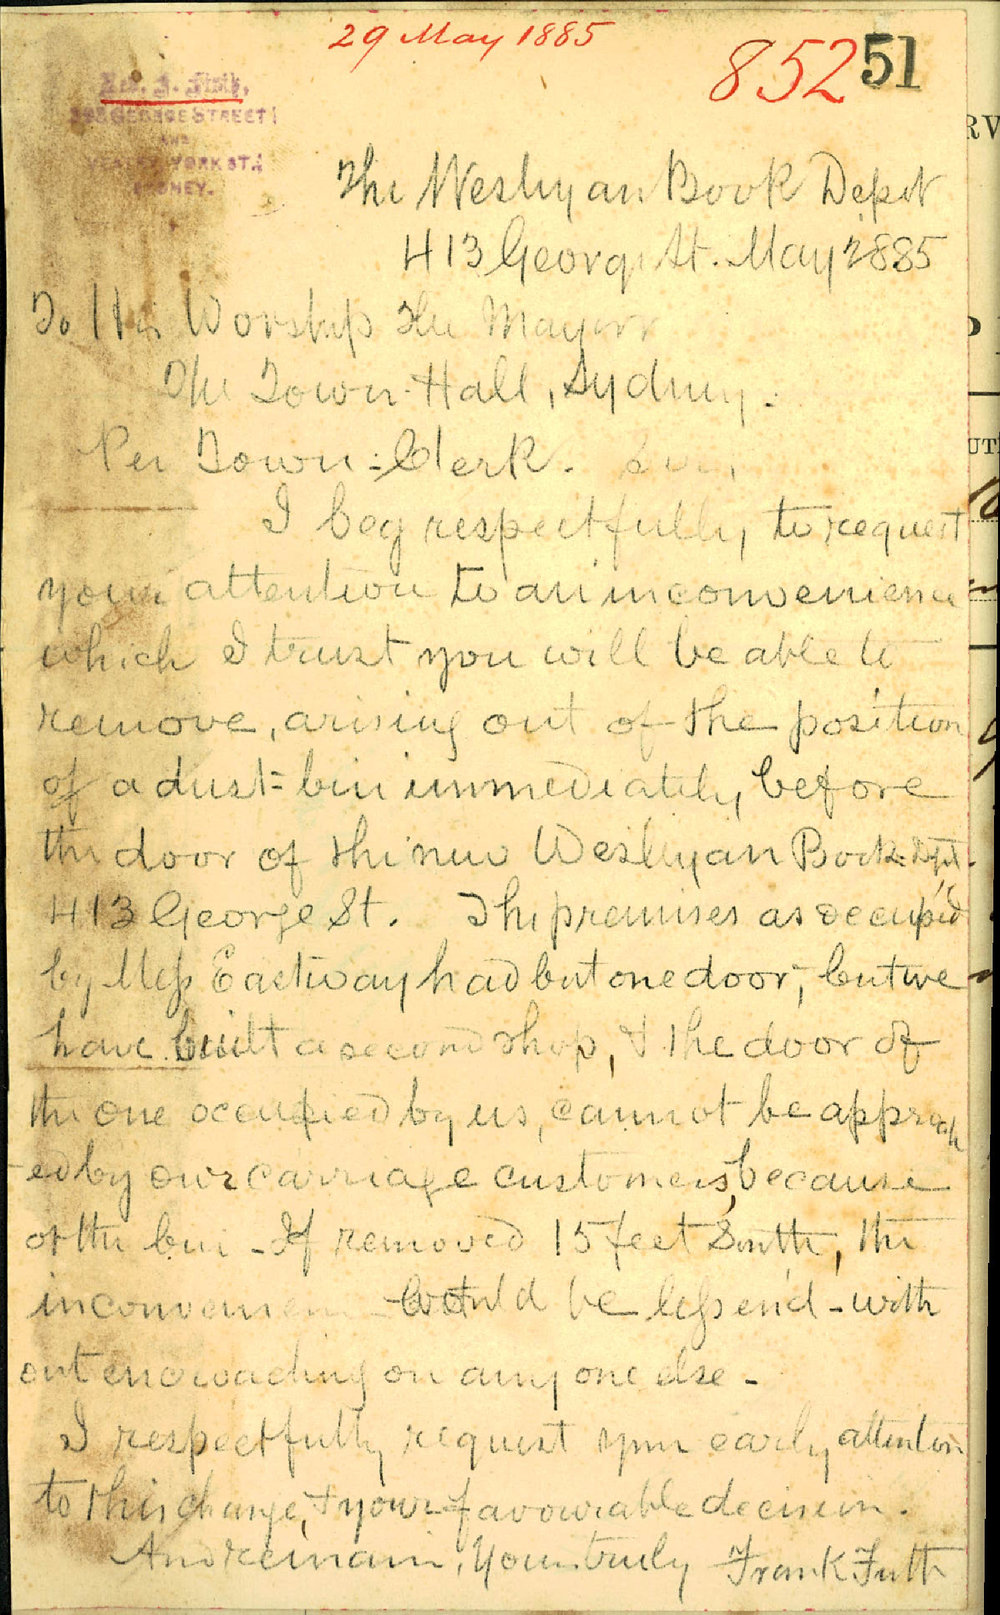 29 May 1885
852 51
GEORGE STREET
AND
YORK ST.
SYDNEY.
The Wesleyan Book Depôt
413 George St. May 2885
To His Worship The Mayor
The Town-Hall, Sydney.
Per Town-Clerk. Sir,
I beg respectfully to request
your attention to an inconvenience
which I trust you will be able to
remove, arising out of the position
of a dust-bin immediately before
the door of the new Wesleyan Book Dept.
413 George St. The premises as occupied
by Mess Eastway had but one door, but we
have built a second shop, & the door of
the one occupied by us, cannot be approach
-ed by our carriage customers, because
of the bin - If removed 15 feet South, the
inconvenien would be lessen'd - with
out encroaching on any one else -
I respectfully request your early attention
to this change, & your favourable decision.
And remain, Yours truly Frank Firth
RV
UT